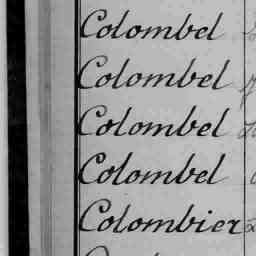 Colombel
Colombel
Colombel
Colombel
Colombier